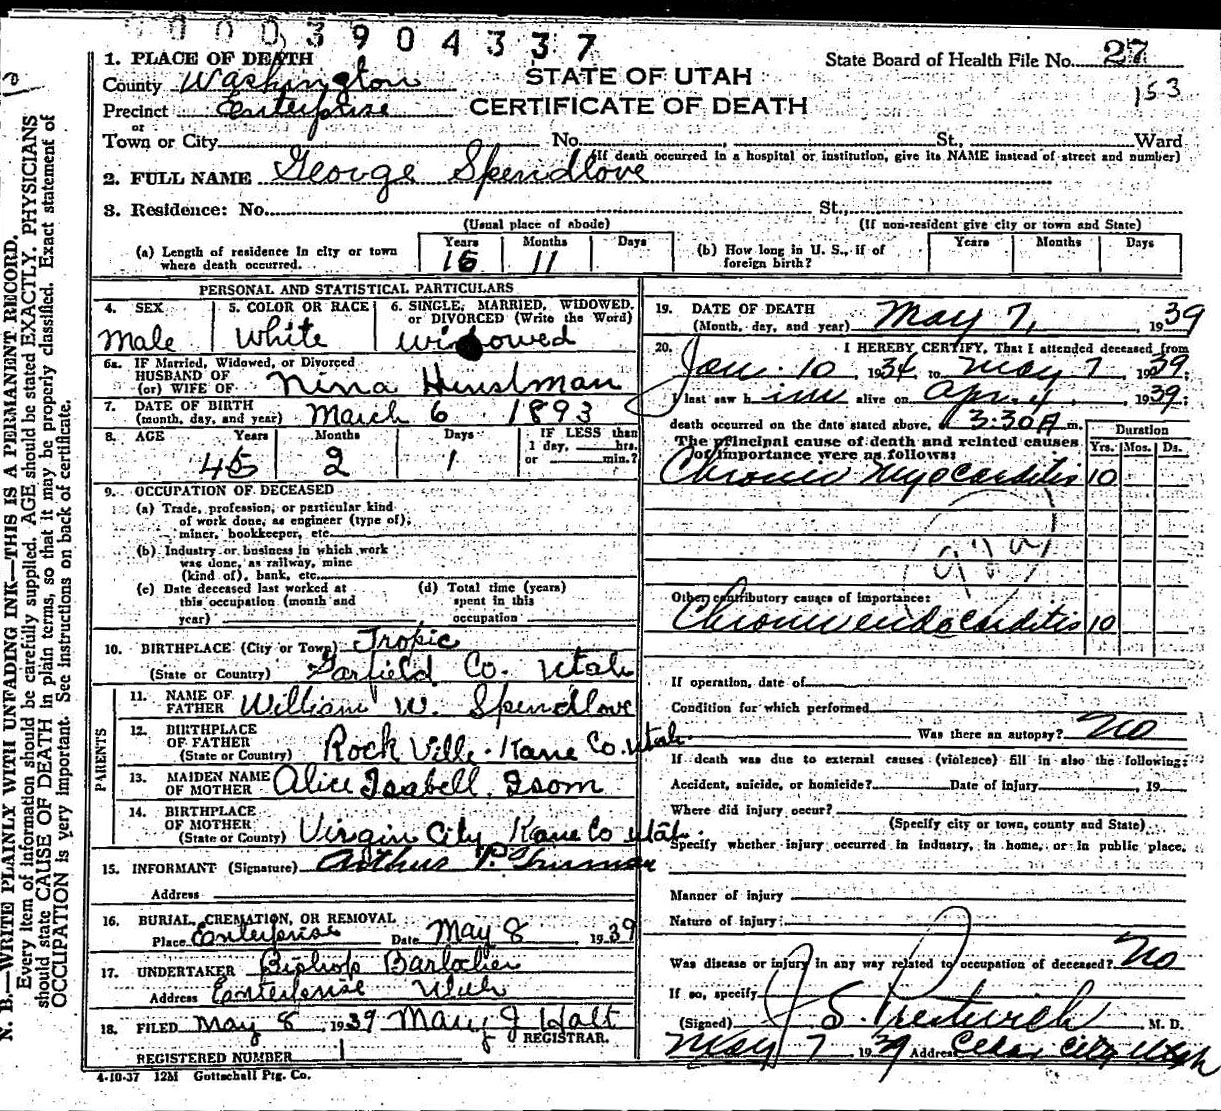 0003904337
1. PLACE OF DEATH
County Washington
Precinct Enterprise
or
Town or City
STATE OF UTAH
CERTIFICATE OF DEATH
State Board of Health File No. 27
153
No. St., Ward
(If death occurred in a hospital or institution, give its NAME instead of street and number)
2. FULL NAME George Spendlove
3. Residence: No. St.,
(Usual place of abode) (If non-resident give city or town and State)
(a) Length of residence in city or town where death occurred. Years 16 Months 11 Days
(b) How long in U. S., if of foreign birth? Years Months Days
PERSONAL AND STATISTICAL PARTICULARS
4. SEX Male
5. COLOR OR RACE White
6. SINGLE, MARRIED, WIDOWED, or DIVORCED (Write the Word) Widowed
6a. IF Married, Widowed, or Divorced
HUSBAND OF
(or) WIFE OF Nina
7. DATE OF BIRTH
(month, day, and year) March 6 1893
8. AGE Years Months Days IF LESS than
45 2 1
1 day, hrs.
or min.?
9. OCCUPATION OF DECEASED
(a) Trade, profession, or particular kind
of work done, as engineer (type of);
miner, bookkeeper, etc.
(b) Industry or business in which work
was done, as railway, mine
(kind of), bank, etc.
(c) Date deceased last worked at
this occupation (month and
year)
(d) Total time (years)
spent in this
occupation
10. BIRTHPLACE (City or Town) Tropic
(State or Country) Garfield Co. Utah
PARENTS
11. NAME OF
FATHER William W. Spendlove
12. BIRTHPLACE
OF FATHER
(State or Country) Rock Ville Kane Co. Utah
13. MAIDEN NAME
OF MOTHER Alice Isabell Isom
14. BIRTHPLACE
OF MOTHER
(State or County) Virgin City Kane Co Utah.
15. INFORMANT (Signature) Arthur
Address
16. BURIAL, CREMATION, OR REMOVAL
Place Enterprise Date May 8, 1939
17. UNDERTAKER Bishop Barlocker
Address Enterprise Utah
18. FILED May 8, 1939 Mary J Holt
REGISTRAR.
REGISTERED NUMBER 1
4-10-37 12M Gottschall Ptg. Co.
19. DATE OF DEATH
(Month, day, and year) May 7, 1939
20. I HEREBY CERTIFY, That I attended deceased from
Jan. 10 1934, to May 7 1939
I last saw him alive on Apr. 1939;
death occurred on the date stated above, a 3:30A m.
The principal cause of death and related causes
of importance were as follows:
Duration
Yrs. Mos. Ds.
Chronic Myocarditis 10
Other contributory causes of importance:
Chronic endocarditis 10
If operation, date of
Condition for which performed
Was there an autopsy? No
If death was due to external causes (violence) fill in also the following:
Accident, suicide, or homicide? Date of injury , 19
Where did injury occur?
(Specify city or town, county and State)
Specify whether injury occurred in industry, in home, or in public place.
Manner of injury
Nature of injury
Was disease or injury in any way related to occupation of deceased? No
If so, specify
(Signed) J S Prestwich M. D.
May 7 1939 Address Cedar City Utah
N. B.—WRITE PLAINLY WITH UNFADING INK—THIS IS A PERMANENT RECORD.
Every item of information should be carefully supplied. AGE should be stated EXACTLY. PHYSICIANS
should state CAUSE OF DEATH in plain terms, so that it may be properly classified. Exact statement of
OCCUPATION is very important. See instructions on back of certificate.